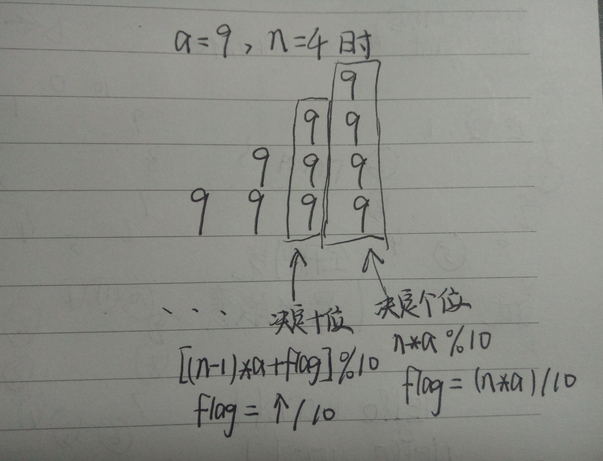 a=9,n=4时
9
9 9
9 9 9
9 9 9 9
··· 决定十位 决定个位
[(n-1)*a+flag]%10 n*a%10
flag=↑/10 flag=(n*a)/10